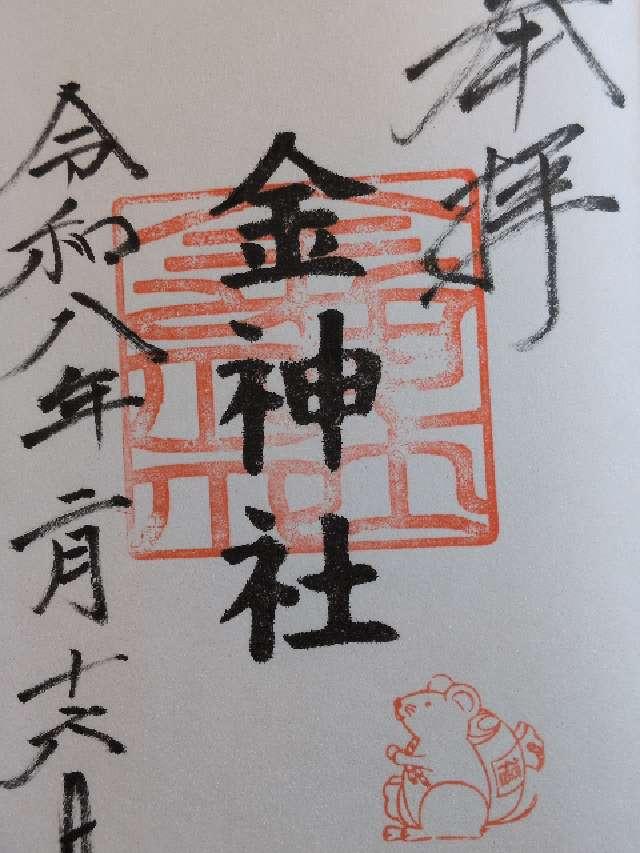 奉拝
金神社
令和八年二月十六日
福